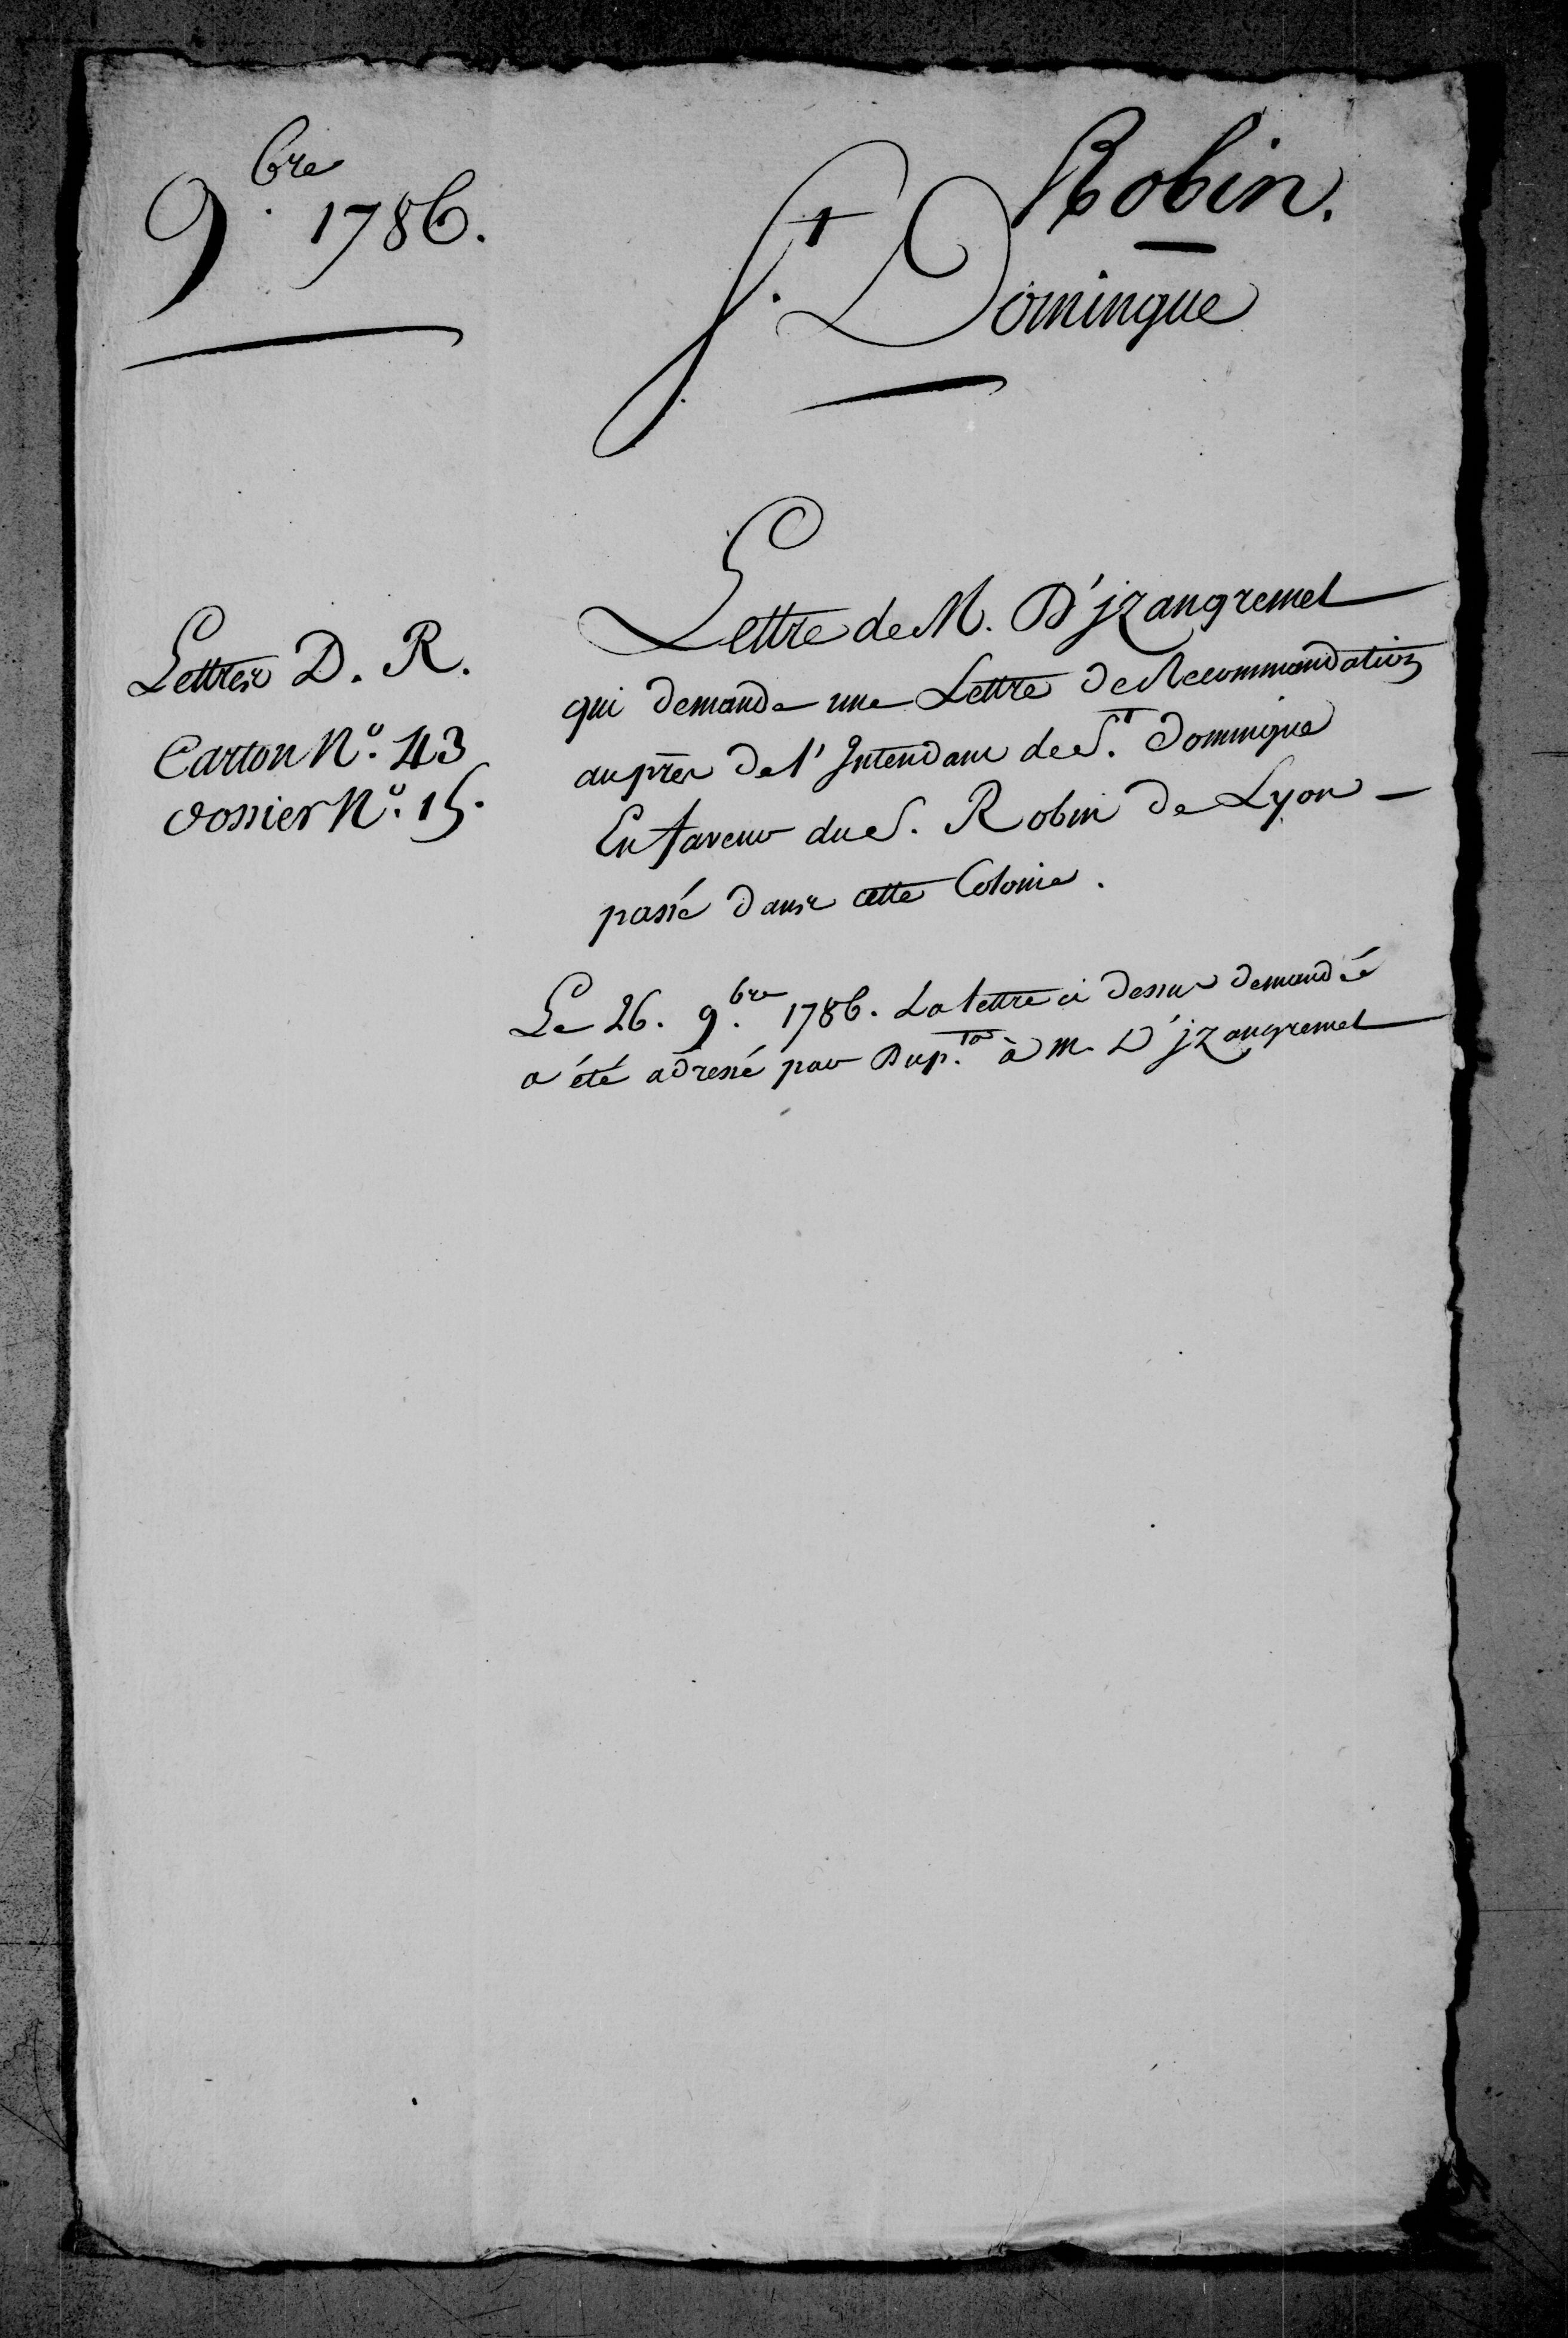 9.bre 1786.
Robin.
St. Domingue
Lettres D. R.
Carton No. 43
dossier No. 15.
Lettre de M. D'jzangremel
qui demande une Lettre de Recommandation
auprès de l'Intendant de St. Domingue
En faveur du S. Robin de Lyon
passé dans cette Colonie.
Le 26. 9.bre 1786. La lettre ci dessus demandée
a été adressé par Dup.ta à M. D'jzangremel